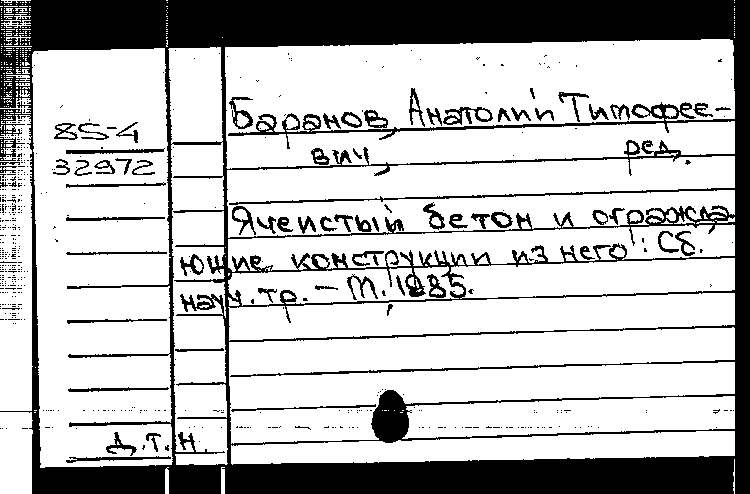 85-4
32972
Баранов, Анатолий Тимофее-
вич, ред.
Ячеистый бетон и огражда-
ющие конструкции из него: Сб.
науч. тр. – М., 1985.
д.т.н.